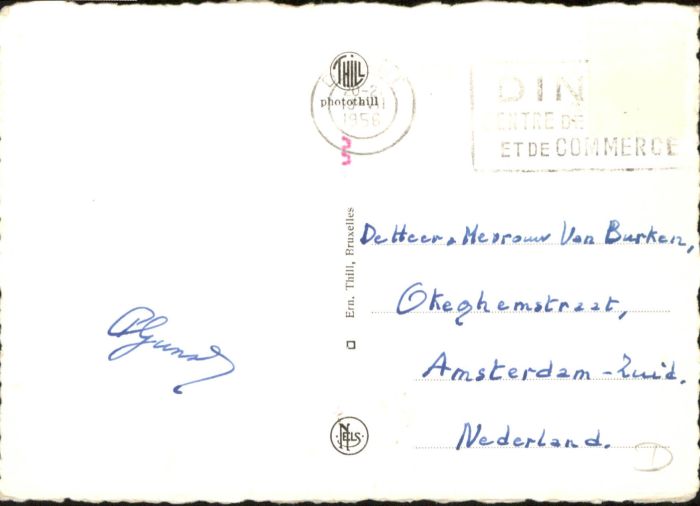 THILL
photothill
1956
DIN
CENTRE DE
ET DE COMMERCE
Ern. Thill, Bruxelles
De Heer, Mevrouw Van Burken,
Okeghemstraat,
Amsterdam-Zuid.
Nederland.
NELS
D